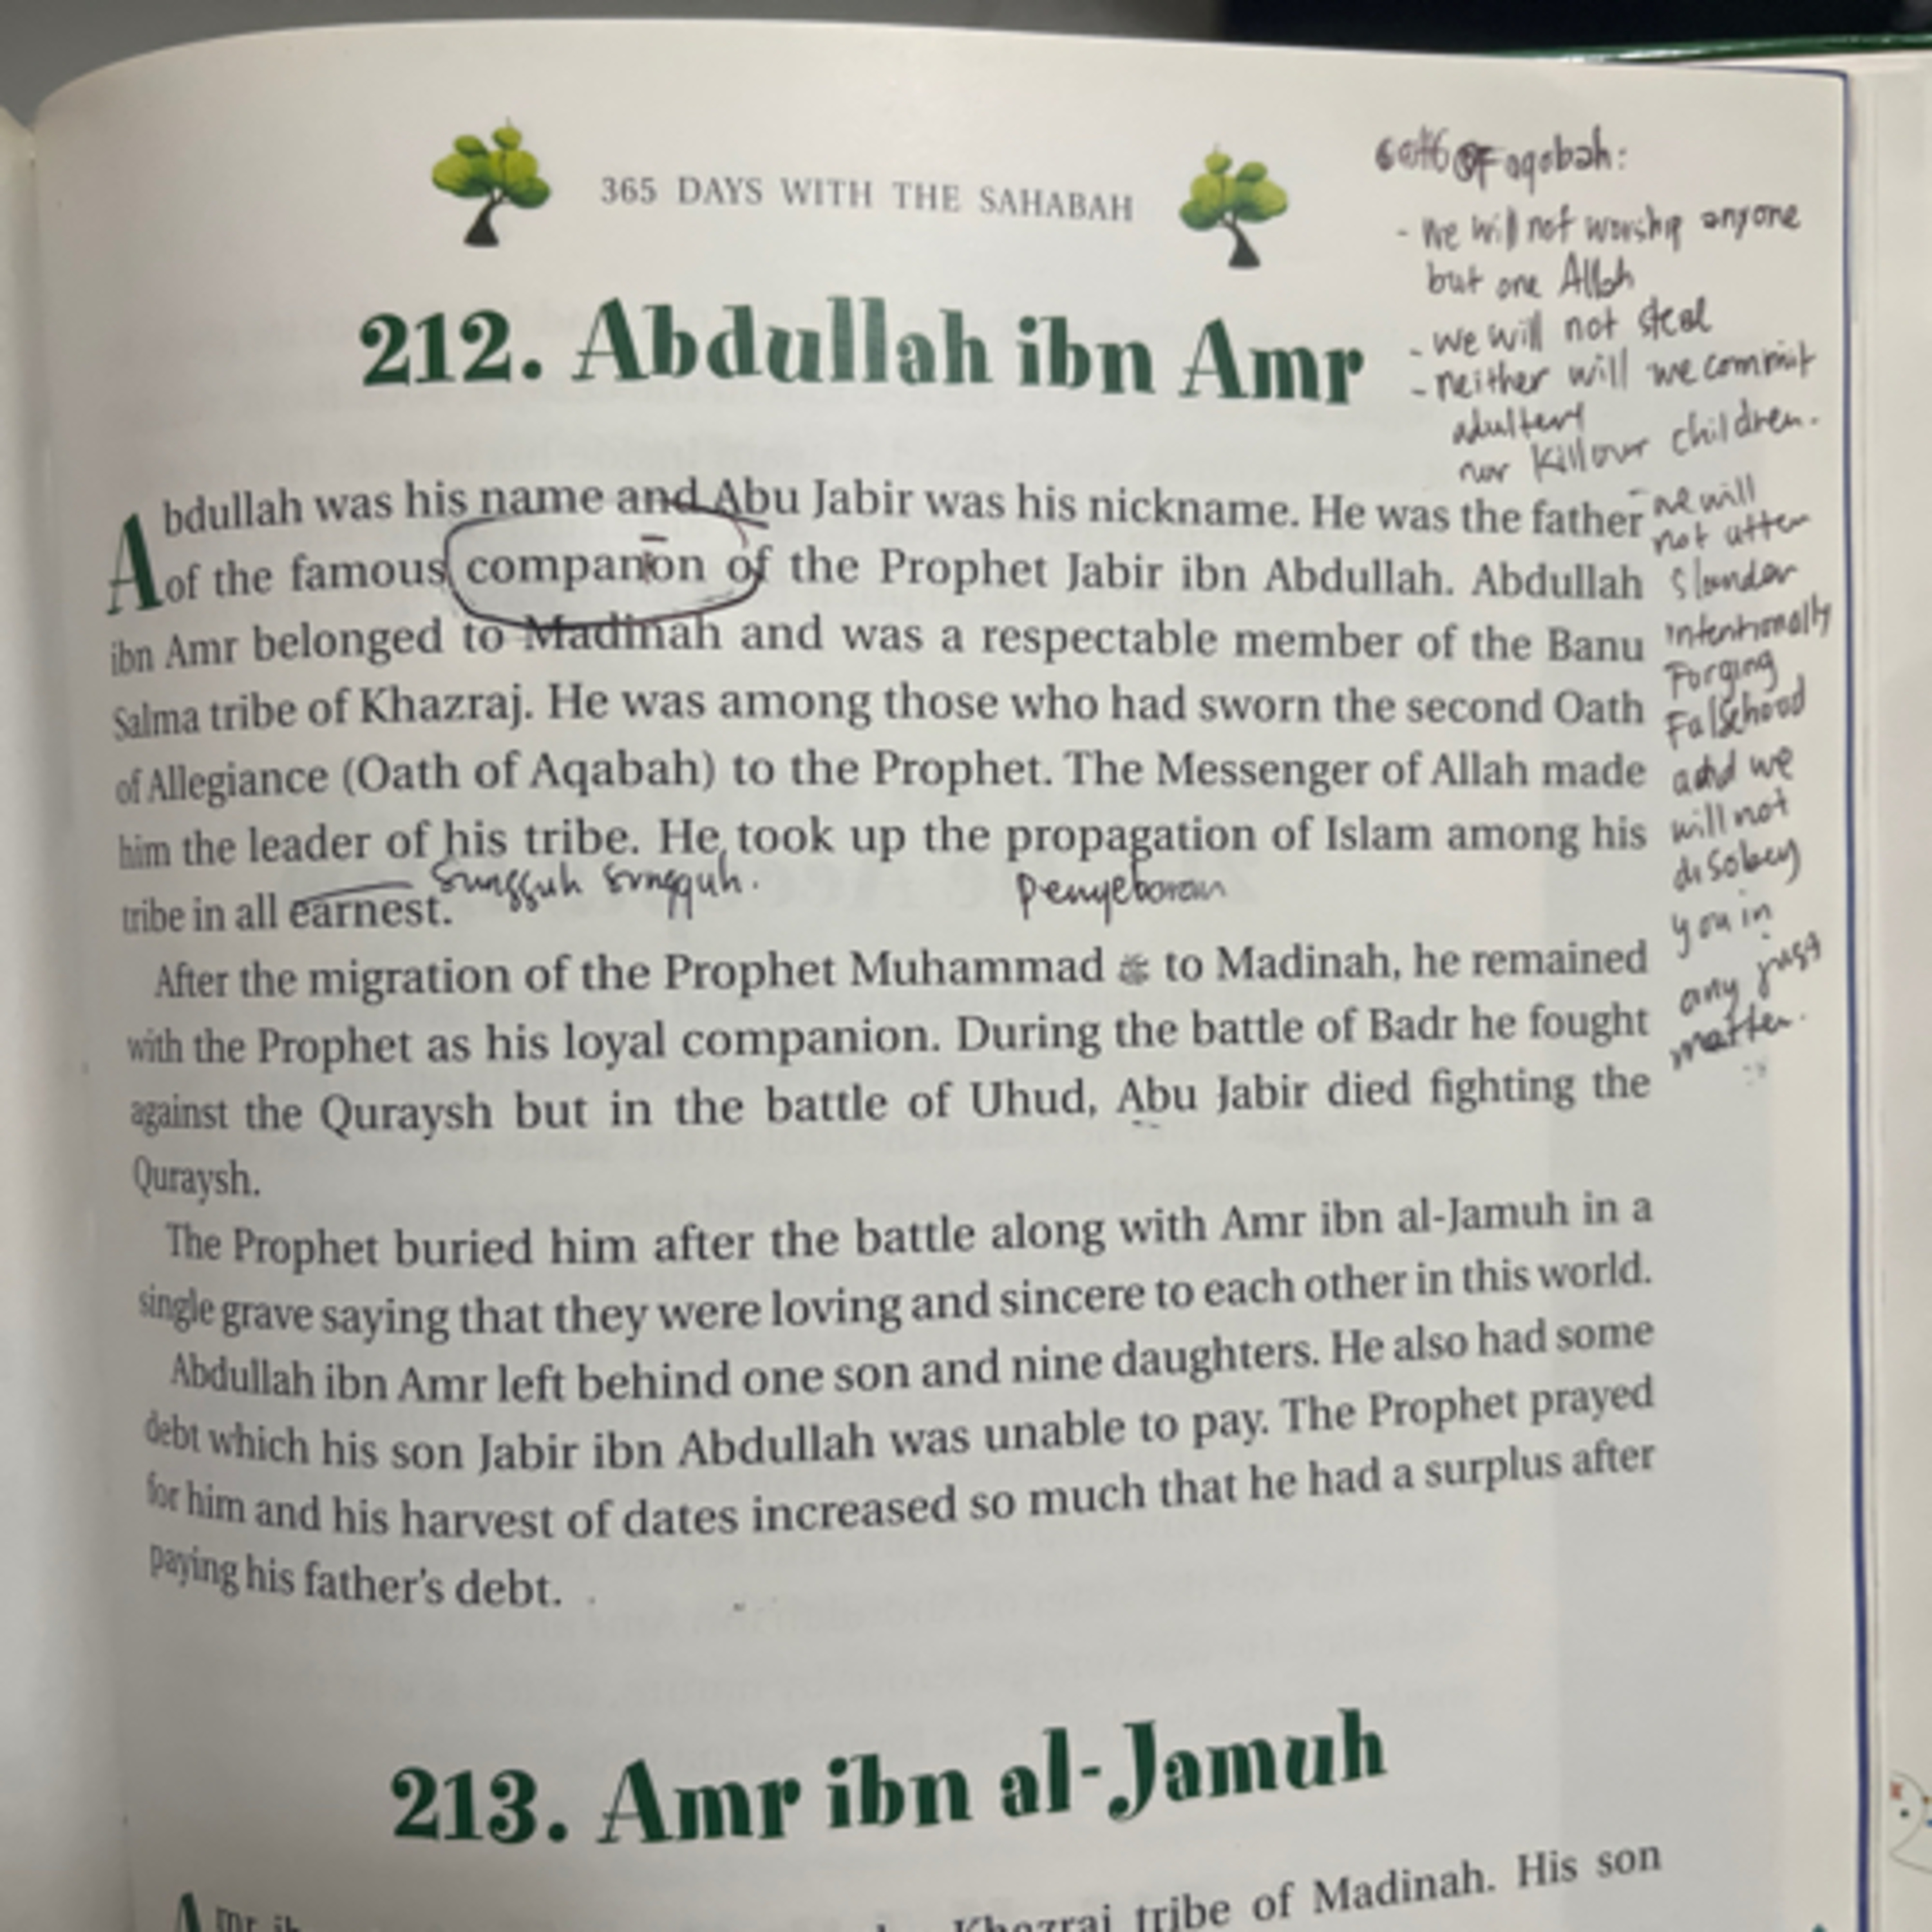 365 DAYS WITH THE SAHABAH
212. Abdullah ibn Amr
Abdullah was his name and Abu Jabir was his nickname. He was the father
of the famous companion of the Prophet Jabir ibn Abdullah. Abdullah
ibn Amr belonged to Madinah and was a respectable member of the Banu
Salma tribe of Khazraj. He was among those who had sworn the second Oath
of Allegiance (Oath of Aqabah) to the Prophet. The Messenger of Allah made
him the leader of his tribe. He took up the propagation of Islam among his
sungguh sungguh.
penyebaran
tribe in all earnest.
After the migration of the Prophet Muhammad ﷺ to Madinah, he remained
with the Prophet as his loyal companion. During the battle of Badr he fought
against the Quraysh but in the battle of Uhud, Abu Jabir died fighting the
Quraysh.
The Prophet buried him after the battle along with Amr ibn al-Jamuh in a
single grave saying that they were loving and sincere to each other in this world.
Abdullah ibn Amr left behind one son and nine daughters. He also had some
debt which his son Jabir ibn Abdullah was unable to pay. The Prophet prayed
for him and his harvest of dates increased so much that he had a surplus after
paying his father's debt.
213. Amr ibn al-Jamuh
tribe of Madinah. His son
of aqobah:
- We will not worship anyone
but one Allah
- we will not steal
- neither will we commit
adultery
nor kill our children.
- we will
not utter
slander
intentionally
Forging
Falsehood
and we
will not
disobey
you in
any just
matter.